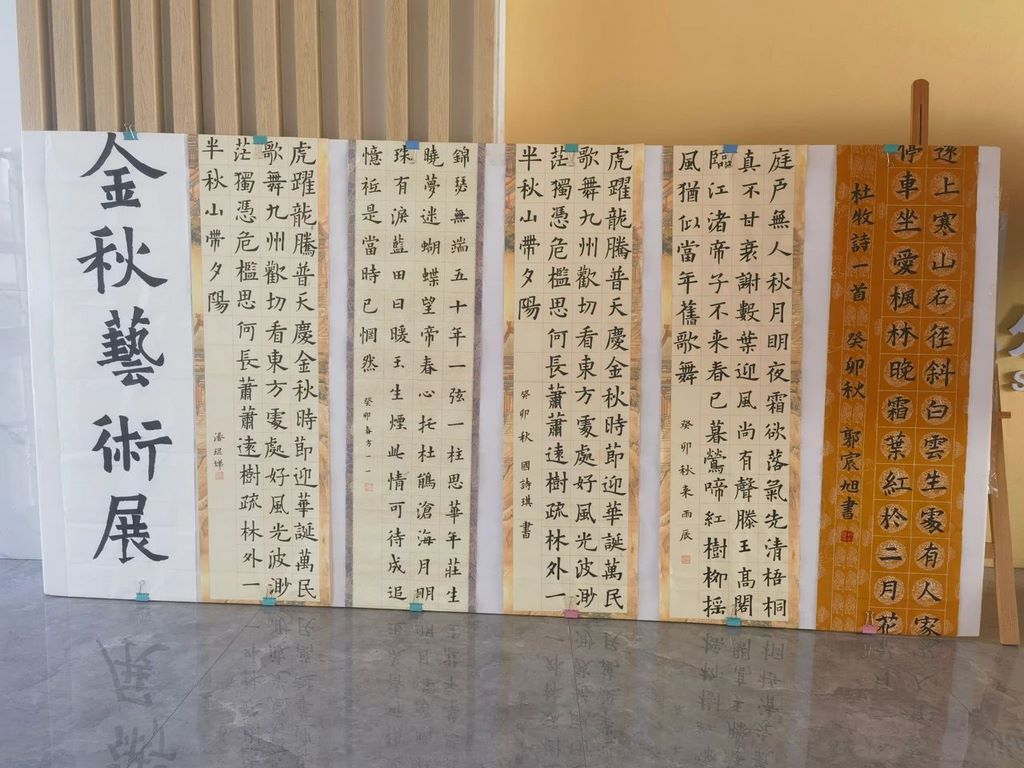 金秋藝術展
虎躍龍騰普天慶金秋時節迎華誕萬民
歌舞九州歡切看東方處處好風光波渺
茫獨憑危檻思何長蕭蕭遠樹疏林外一
半秋山帶夕陽
錦瑟無端五十年一弦一柱思華年莊生
曉夢迷蝴蝶望帝春心托杜鵑滄海月明
珠有淚藍田日暖玉生煙此情可待成追
憶祗是當時已惘然
癸卯春方一一
虎躍龍騰普天慶金秋時節迎華誕萬民
歌舞九州歡切看東方處處好風光波渺
茫獨憑危檻思何長蕭蕭遠樹疏林外一
半秋山帶夕陽
癸卯秋 國詩琪 書
庭戶無人秋月明夜霜欲落氣先清梧桐
真不甘衰謝數葉迎風尚有聲滕王高閣
臨江渚帝子不来春已暮鶯啼紅樹柳搖
風猶似當年舊歌舞
癸卯秋朱雨辰
遠上寒山石径斜白雲生處有人家
停車坐愛楓林晚霜葉紅於二月花
杜牧詩一首 癸卯秋 郭宸旭書